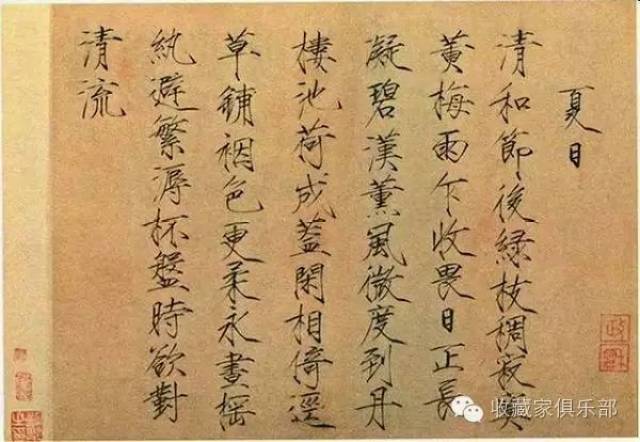 夏日
清和節後緑枝稠寂寞
黃梅雨乍收畏日正長
凝碧漢薰風微度到丹
樓池荷成蓋閑相倚逕
草鋪裀色更柔永晝搖
紈避繁溽杯盤時欲對
清流
收藏家俱乐部